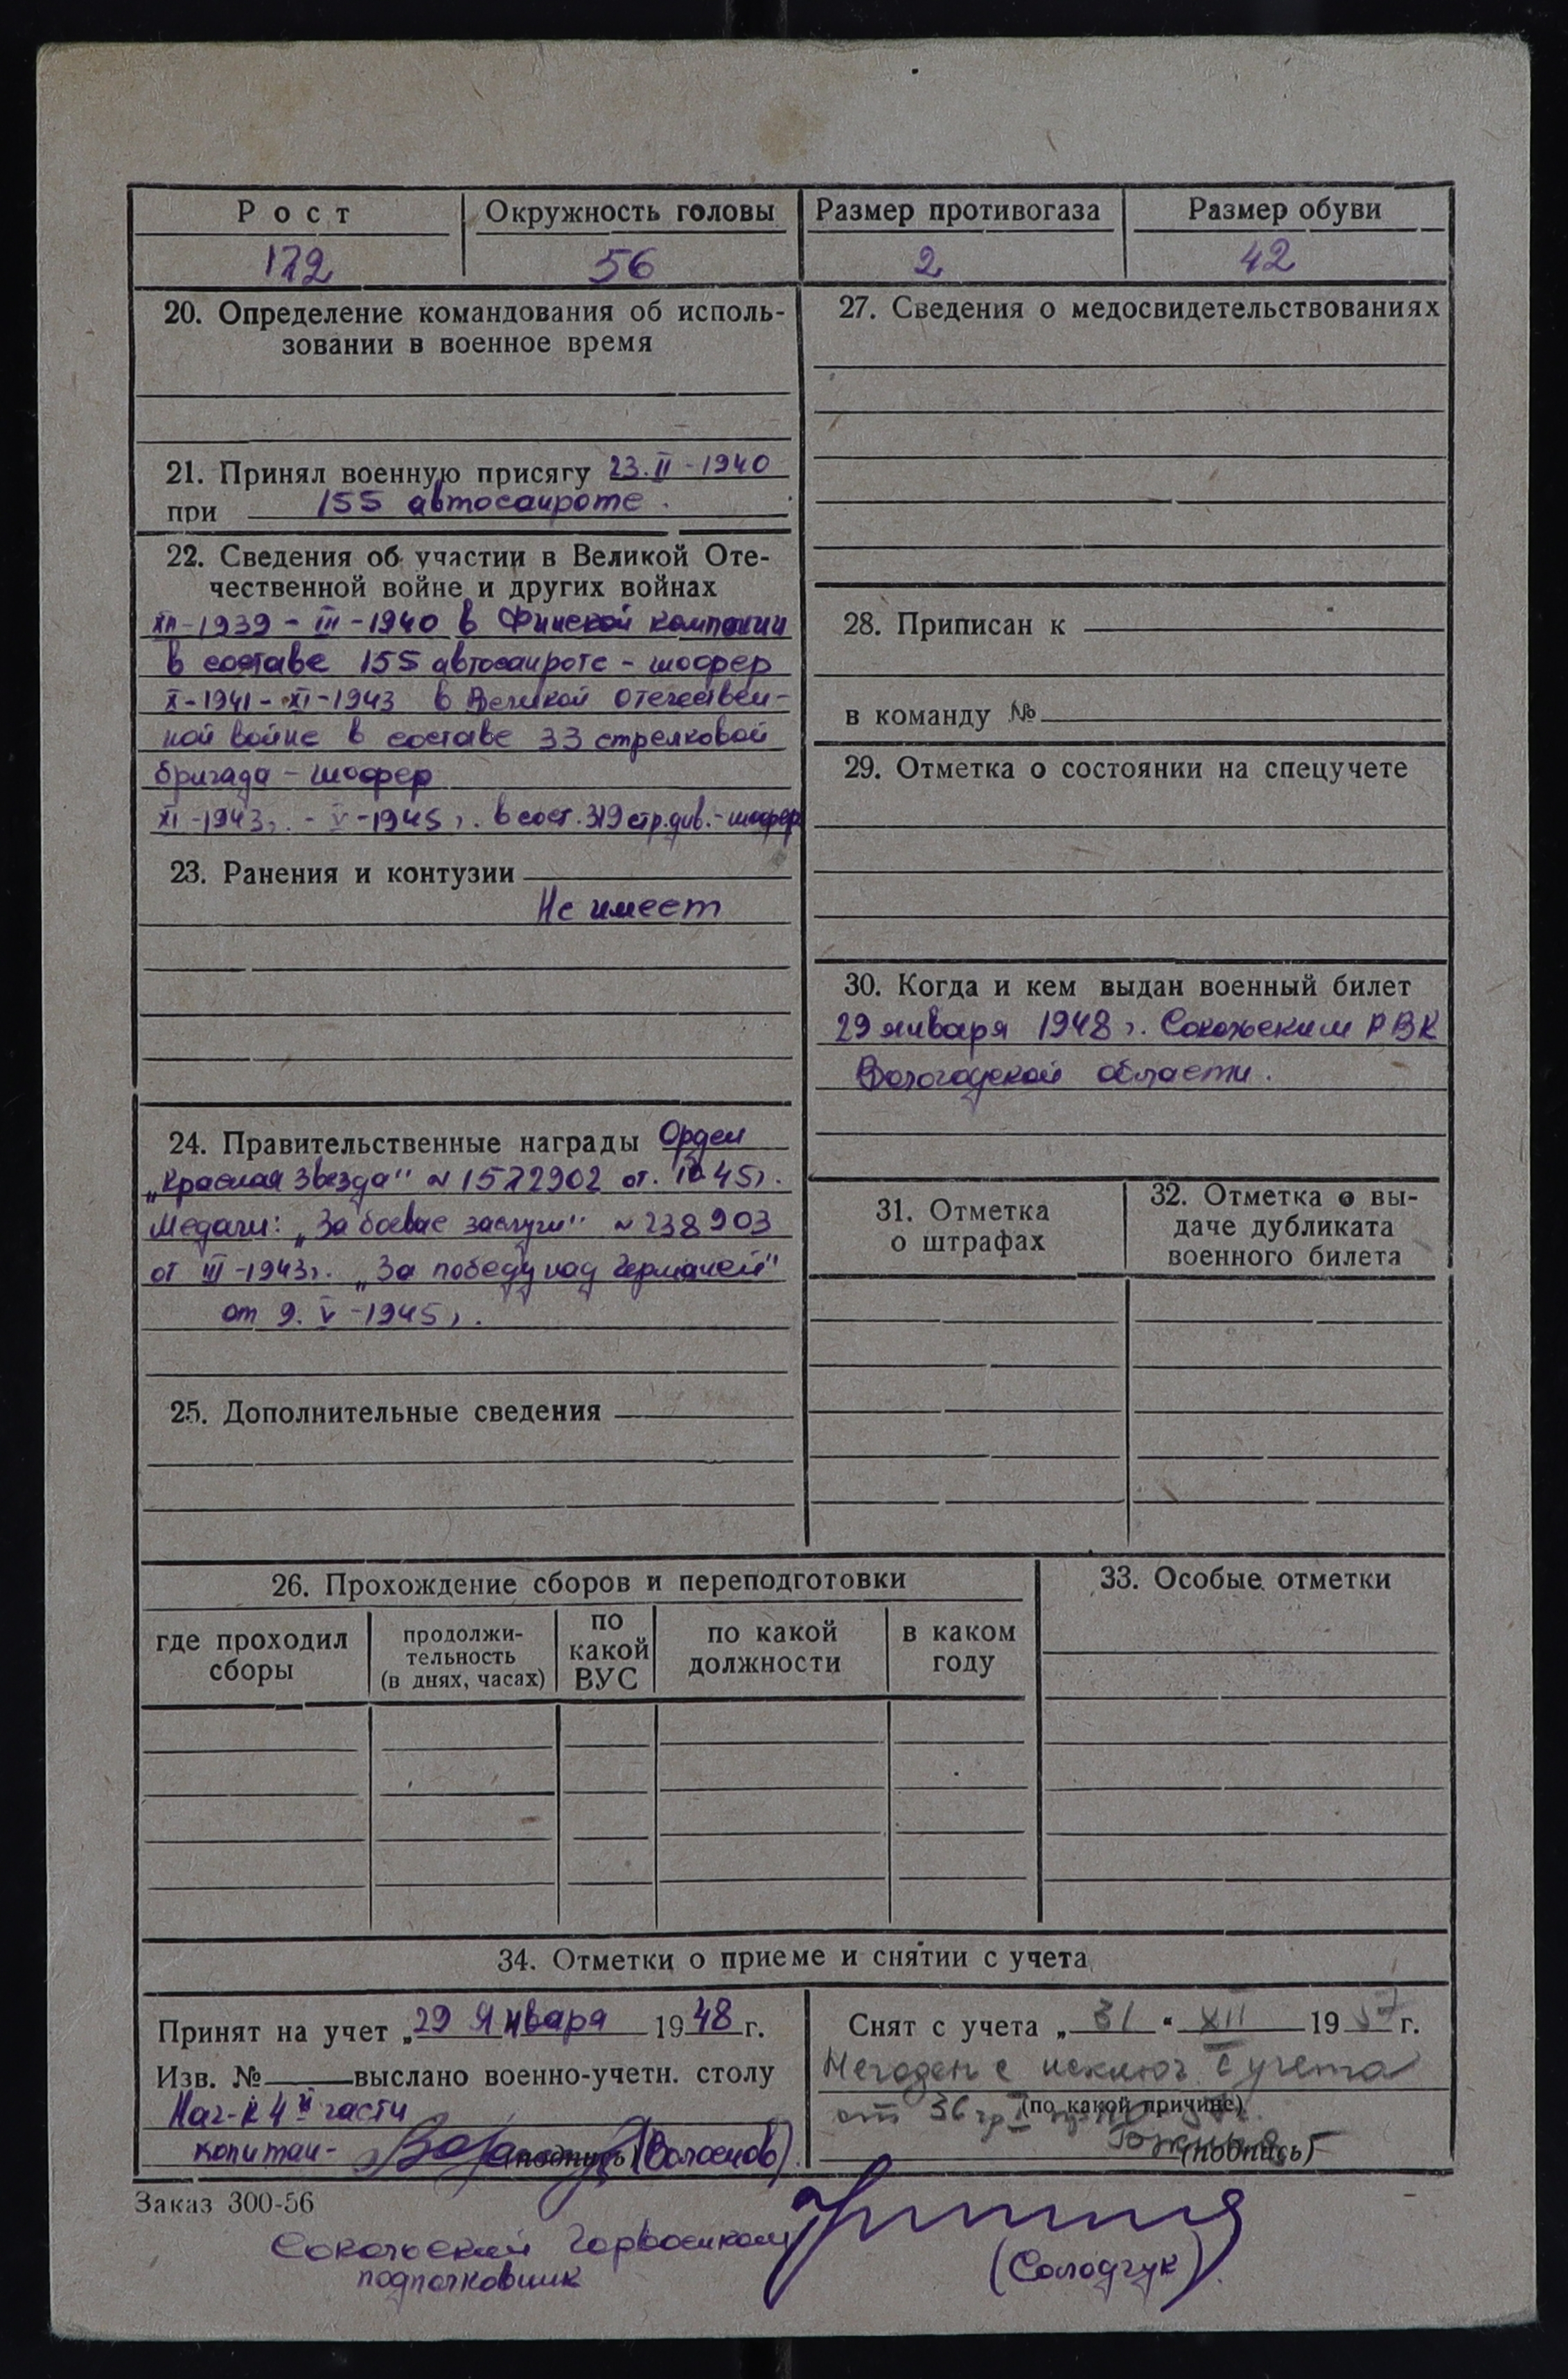 Рост
Окружность головы
Размер противогаза
Размер обуви
172
56
2
42
20. Определение командования об исполь-
зовании в военное время
21. Принял военную присягу 23.II-1940
при 155 автосанроте.
22. Сведения об участии в Великой Оте-
чественной войне и других войнах
XII-1939 - III-1940 в Финской компании
в составе 155 автосанроте - шофер
X-1941 - XI-1943 в Великой Отечествен-
ной войне в составе 33 стрелковой
бригада - шофер
XI-1943г. - V-1945г. в сост. 319 стр.див.-шофер
23. Ранения и контузии
Не имеет
24. Правительственные награды Орден
„Красная Звезда" № 1572902 от. IV 45г.
Медали: „За боевые заслуги" № 238903
от III-1943г. „За победу над Германией"
от 9. V-1945г.
25. Дополнительные сведения
27. Сведения о медосвидетельствованиях
28. Приписан к
в команду №
29. Отметка о состоянии на спецучете
30. Когда и кем выдан военный билет
29 января 1948г. Сокольским РВК
Вологодской области.
31. Отметка
о штрафах
32. Отметка о вы-
даче дубликата
военного билета
26. Прохождение сборов и переподготовки
где проходил
сборы
продолжи-
тельность
(в днях, часах)
по
какой
ВУС
по какой
должности
в каком
году
33. Особые отметки
34. Отметки о приеме и снятии с учета
Принят на учет „29 Января 1948г.
Изв. № выслано военно-учетн. столу
Нач-к 4й части
капитан- (подпись) (Волоснов)
Снят с учета „31" XII 1957г.
Негоден с исключ. с учета
(по какой причине)
от 36 гр. I
(подпись)
Заказ 300-56
Сокольский Горвоенком
подполковник
(Солодчук).